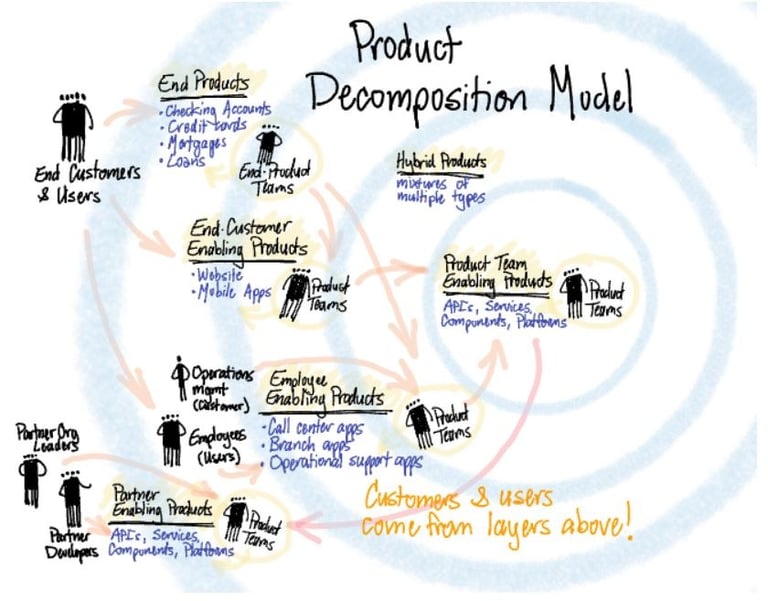 Product
Decomposition Model
End Products
• Checking Accounts
• Credit cards
• Mortgages
• Loans
End Customers
& Users
End-Product
Teams
Hybrid Products
mixtures of
multiple types
End-Customer
Enabling Products
• Website
• Mobile Apps
Product
Teams
Product Team
Enabling Products
APIs, Services,
Components, Platforms
Product
Teams
Operations
mgmt
(Customer)
Employees
(Users)
Employee
Enabling Products
• Call center apps
• Branch apps
• Operational support apps
Product
Teams
Partner Org
Leaders
Partner
Developers
Partner
Enabling Products
APIs, Services,
Components, Platforms
Product
Teams
Customers & users
come from layers above!